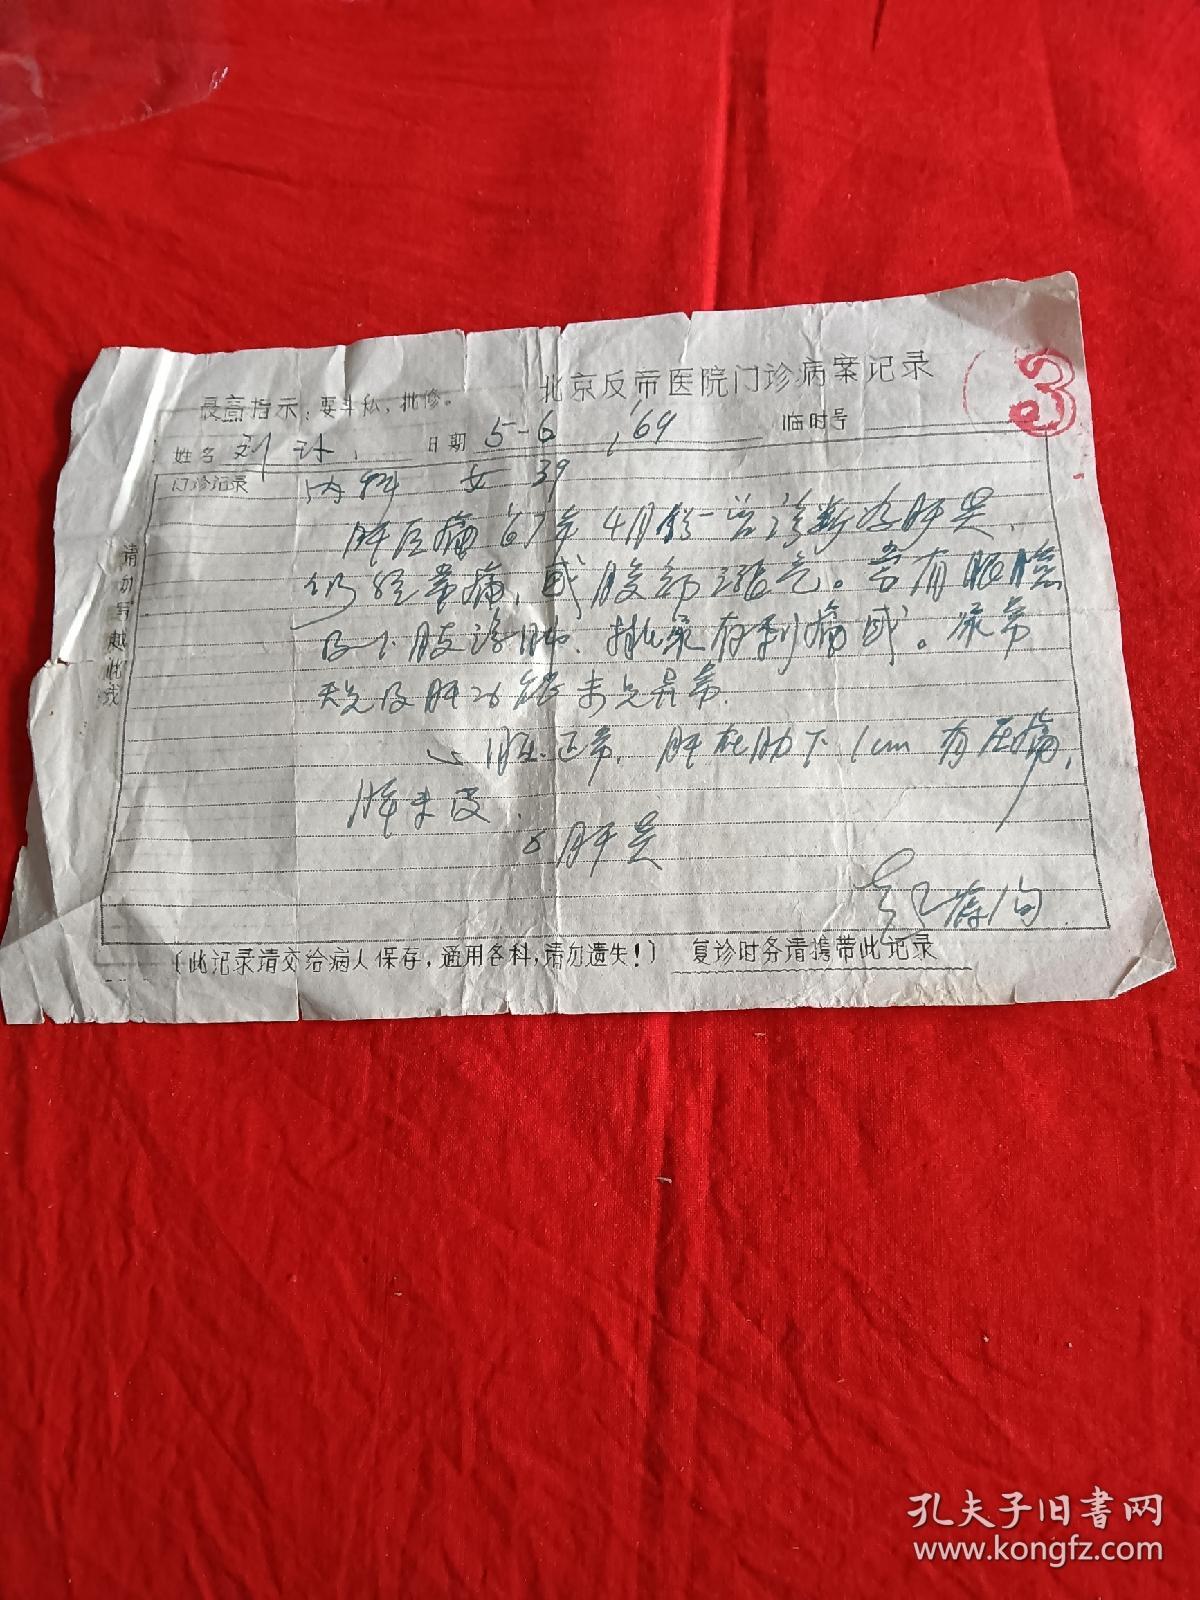 北京反帝医院门诊病案记录
3
最高指示：要斗私，批修。
姓名 刘 日期 5-6 ,69 临时号
门诊记录 内科 女 39
请勿写越此线
肝区痛 67年4月份 曾诊断为肝炎，
仍经常痛，感腹部涨气。常有眼睑
及下肢浮肿、排尿有刺痛感。尿常
规及肝功能未见异常。
心肺正常，肝在肋下1cm 有压痛，
脾未及。
肝炎
（此记录请交给病人保存，通用各科，请勿遗失！） 复诊时务请携带此记录
孔夫子旧书网
www.kongfz.com